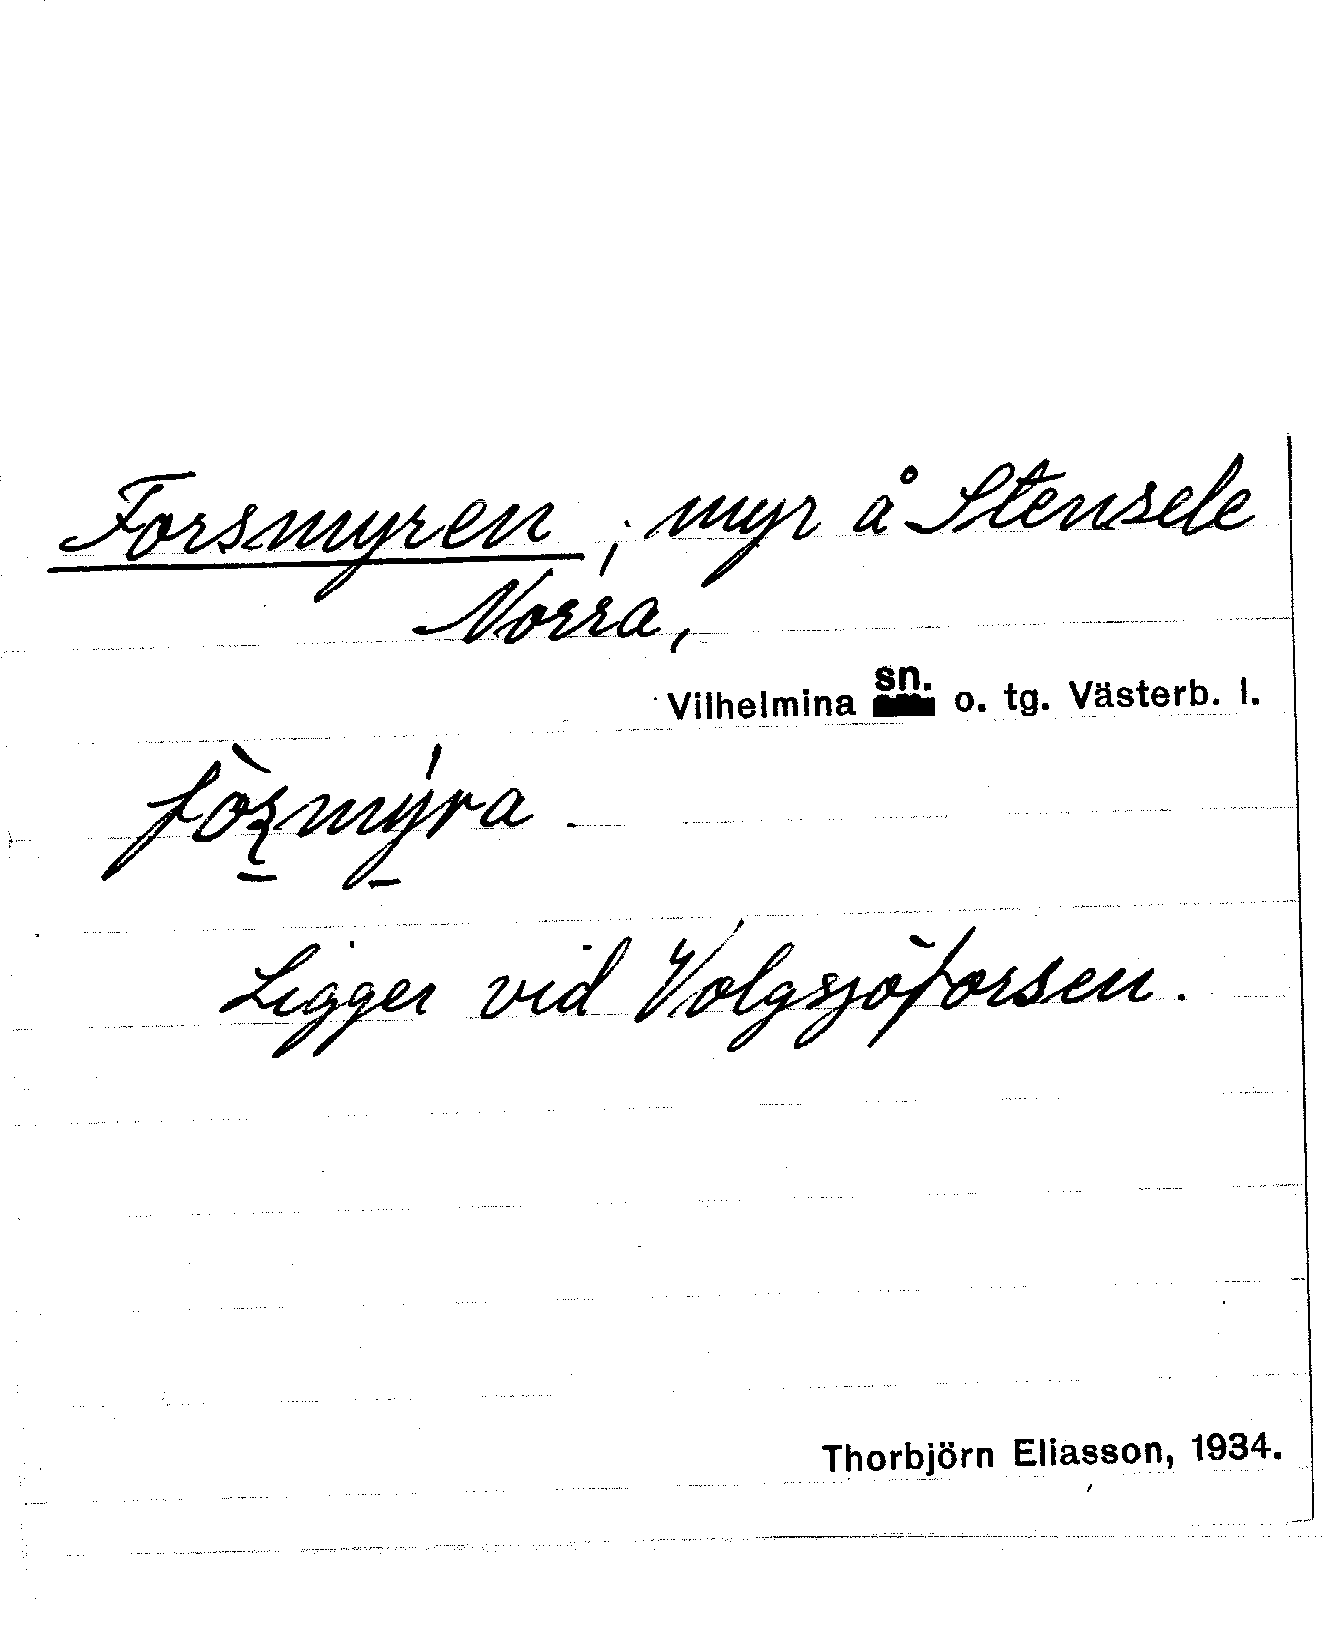 Forsmyren, myr å Stensele
Norra,
Vilhelmina sn. o. tg. Västerb. l.
Ligger vid Volgsjöforsen.
Thorbjörn Eliasson, 1934.